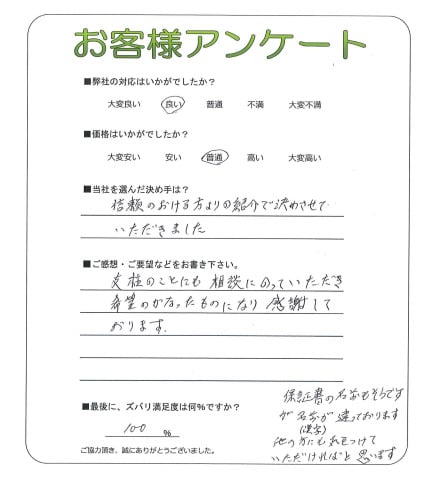 お客様アンケート
■弊社の対応はいかがでしたか？
大変良い 良い 普通 不満 大変不満
■価格はいかがでしたか？
大変安い 安い 普通 高い 大変高い
■当社を選んだ決め手は？
信頼のおける方よりの紹介で決めさせて
いただきました
■ご感想・ご要望などをお書き下さい。
支柱のことにも相談にのっていただき
希望のかなったものになり感謝して
おります.
■最後に、ズバリ満足度は何％ですか？
100 %
ご協力頂き、誠にありがとうございました。
保証書の名前もそうです
が名前が違っております
(漢字)
他の方にも気をつけて
いただければと思います